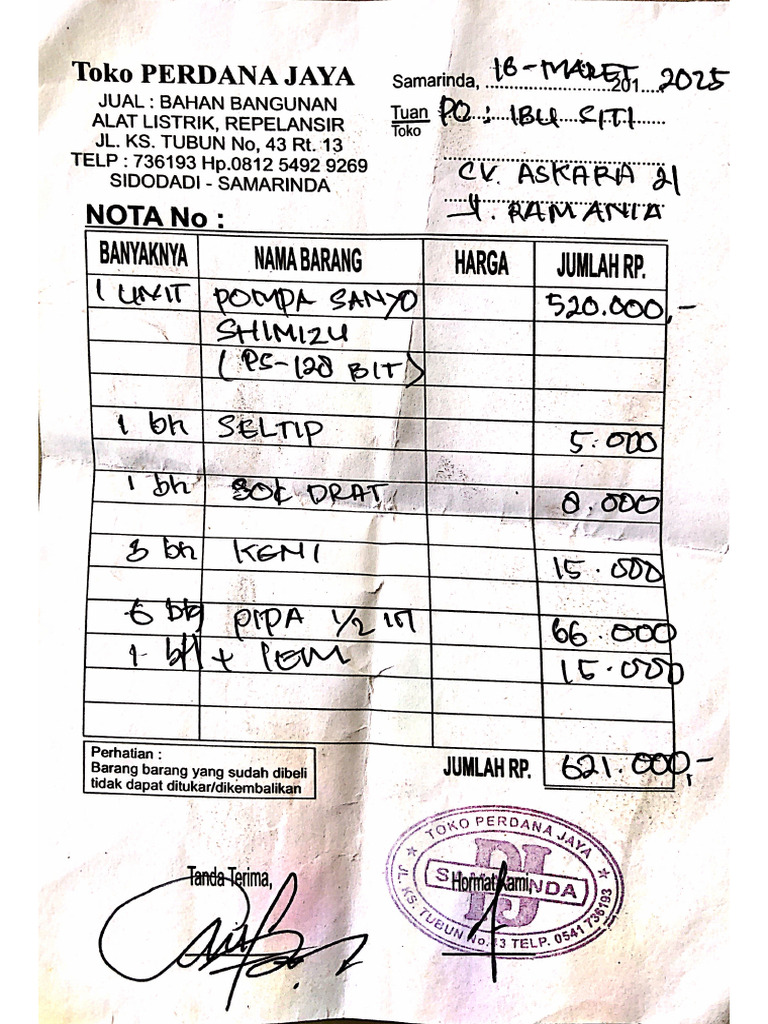 Toko PERDANA JAYA
JUAL : BAHAN BANGUNAN
ALAT LISTRIK, REPELANSIR
JL. KS. TUBUN No, 43 Rt. 13
TELP : 736193 Hp.0812 5492 9269
SIDODADI - SAMARINDA
Samarinda, 18-MARET 201 2025
Tuan PQ : IBU SITI
Toko
CV. ASKARA 21
RAMANIA
NOTA No :
BANYAKNYA NAMA BARANG HARGA JUMLAH RP.
1 UNIT POMPA SANYO 520.000,-
SHIMIZU
(PS-128 BIT)
1 bh SELTIP 5.000
1 bh SOK DRAT 8.000
3 bh KENI 15.000
6 PIPA 1/2 IN 66.000
1 + LEM 15.000
Perhatian :
Barang barang yang sudah dibeli
tidak dapat ditukar/dikembalikan
JUMLAH RP. 621.000,-
Tanda Terima,
Hormat Kami,
TOKO PERDANA JAYA
PJ
JL. KS. TUBUN No.43 TELP. 0541 736193